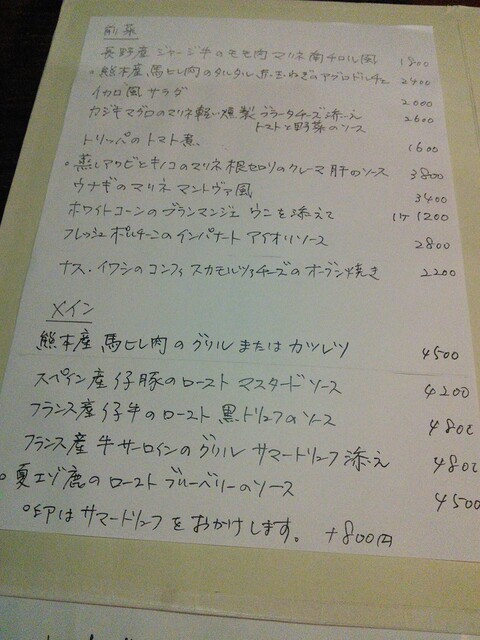 前菜
長野産 ジャージー牛のモモ肉 マリネ 南チロル風 1900
○熊本産 馬ヒレ肉のタルタル 赤玉ねぎのアグロドルチェ 2400
イカロ風 サラダ 2000
カジキマグロのマリネ 軽い燻製 ブラータチーズ添え 2600
トマトと野菜のソース
トリッパの トマト煮 1600
○蒸しアワビとキノコのマリネ 根セロリのクレーマ 肝のソース 3800
ウナギの マリネ マントヴァ風 3400
ホワイトコーンの ブランマンジェ ウニを添えて 1ケ 1200
フレッシュ ポルチーニの インパナート アイオリソース 2800
ナス・イワシの コンフィ スカモルツァチーズの オーブン焼き 2200
メイン
熊本産 馬ヒレ肉の グリル または カツレツ 4500
スペイン産 仔豚の ロースト マスタードソース 4200
フランス産 仔牛の ロースト 黒トリュフの ソース 4800
フランス産 牛サーロインの グリル サマートリュフ 添え 4800
○夏エゾ鹿の ロースト ブルーベリーの ソース 4500
○印は サマートリュフ を おかけします。 +800円